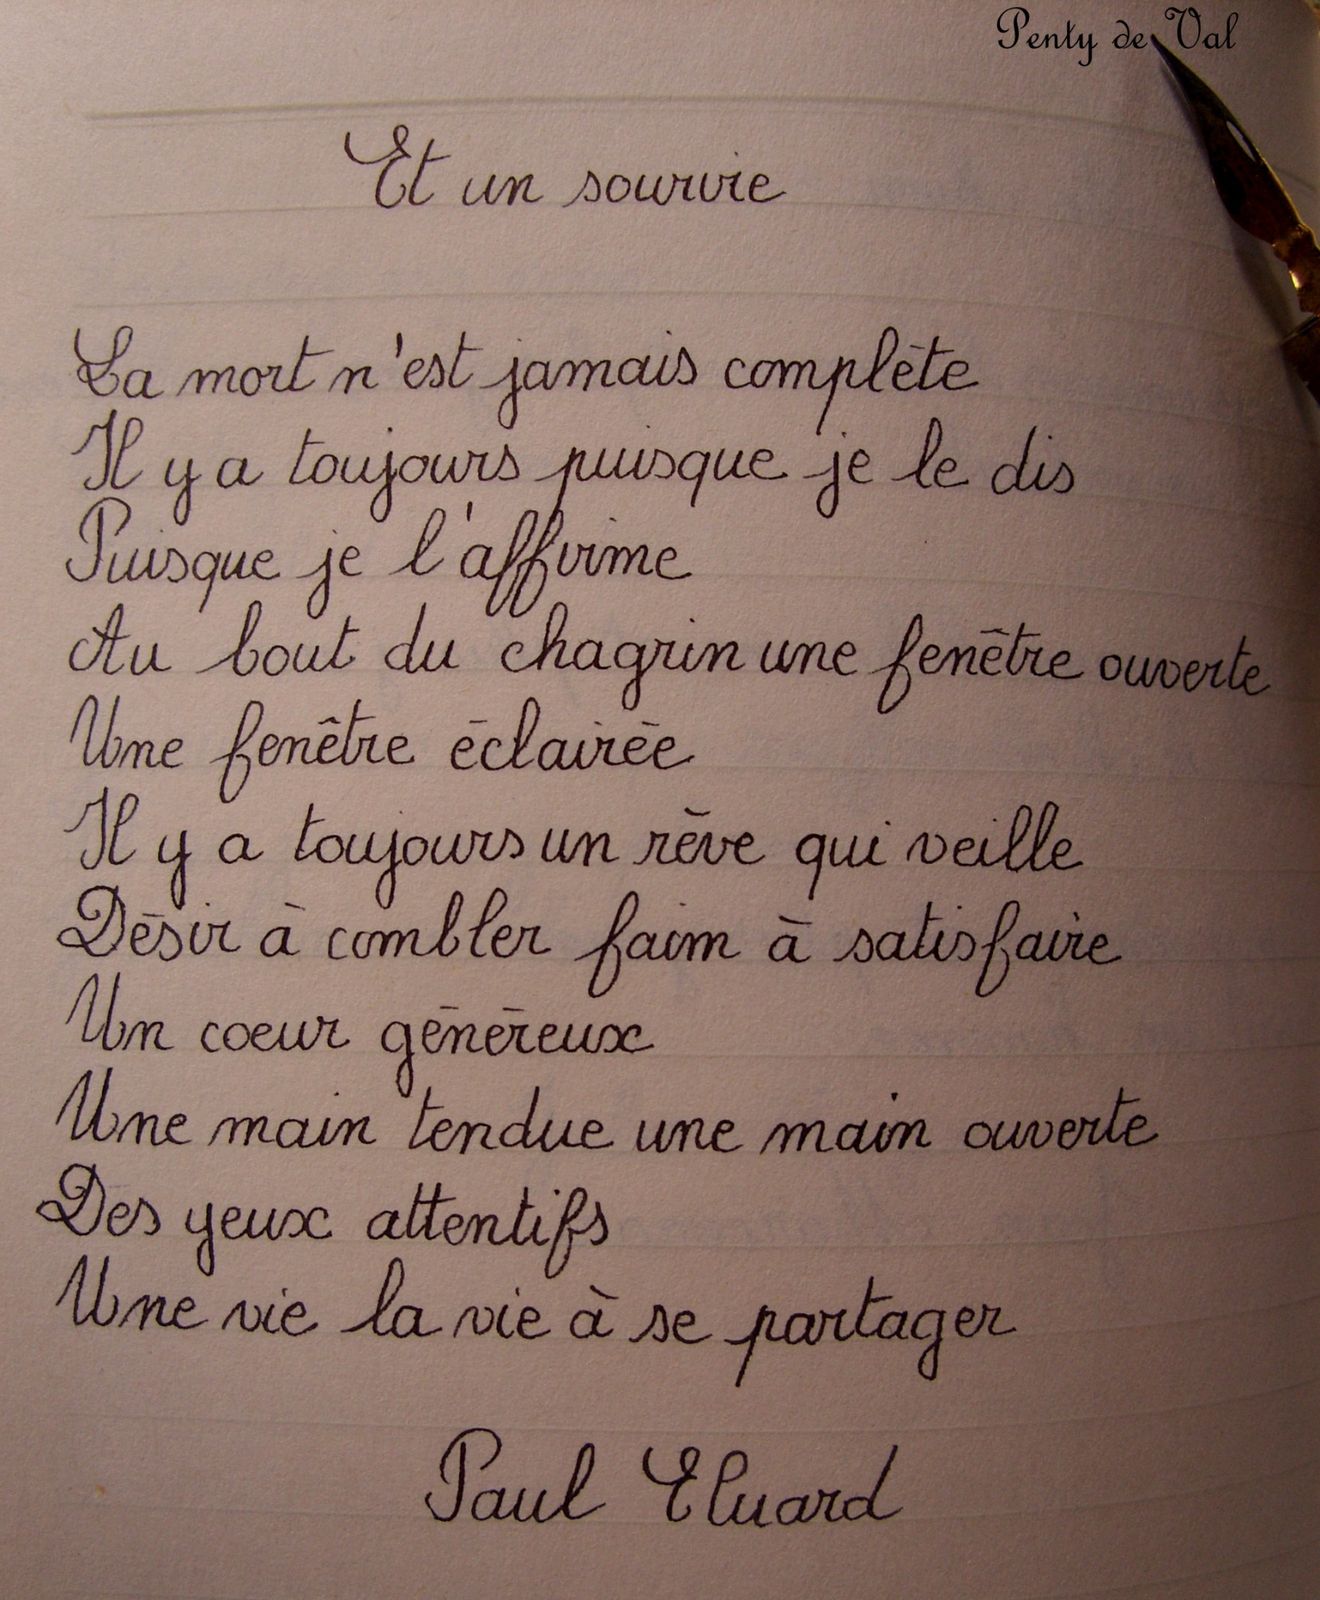 Penty de Val
Et un sourire
La mort n'est jamais complète
Il y a toujours puisque je le dis
Puisque je l'affirme
Au bout du chagrin une fenêtre ouverte
Une fenêtre éclairée
Il y a toujours un rêve qui veille
Désir à combler faim à satisfaire
Un coeur généreux
Une main tendue une main ouverte
Des yeux attentifs
Une vie la vie à se partager
Paul Eluard